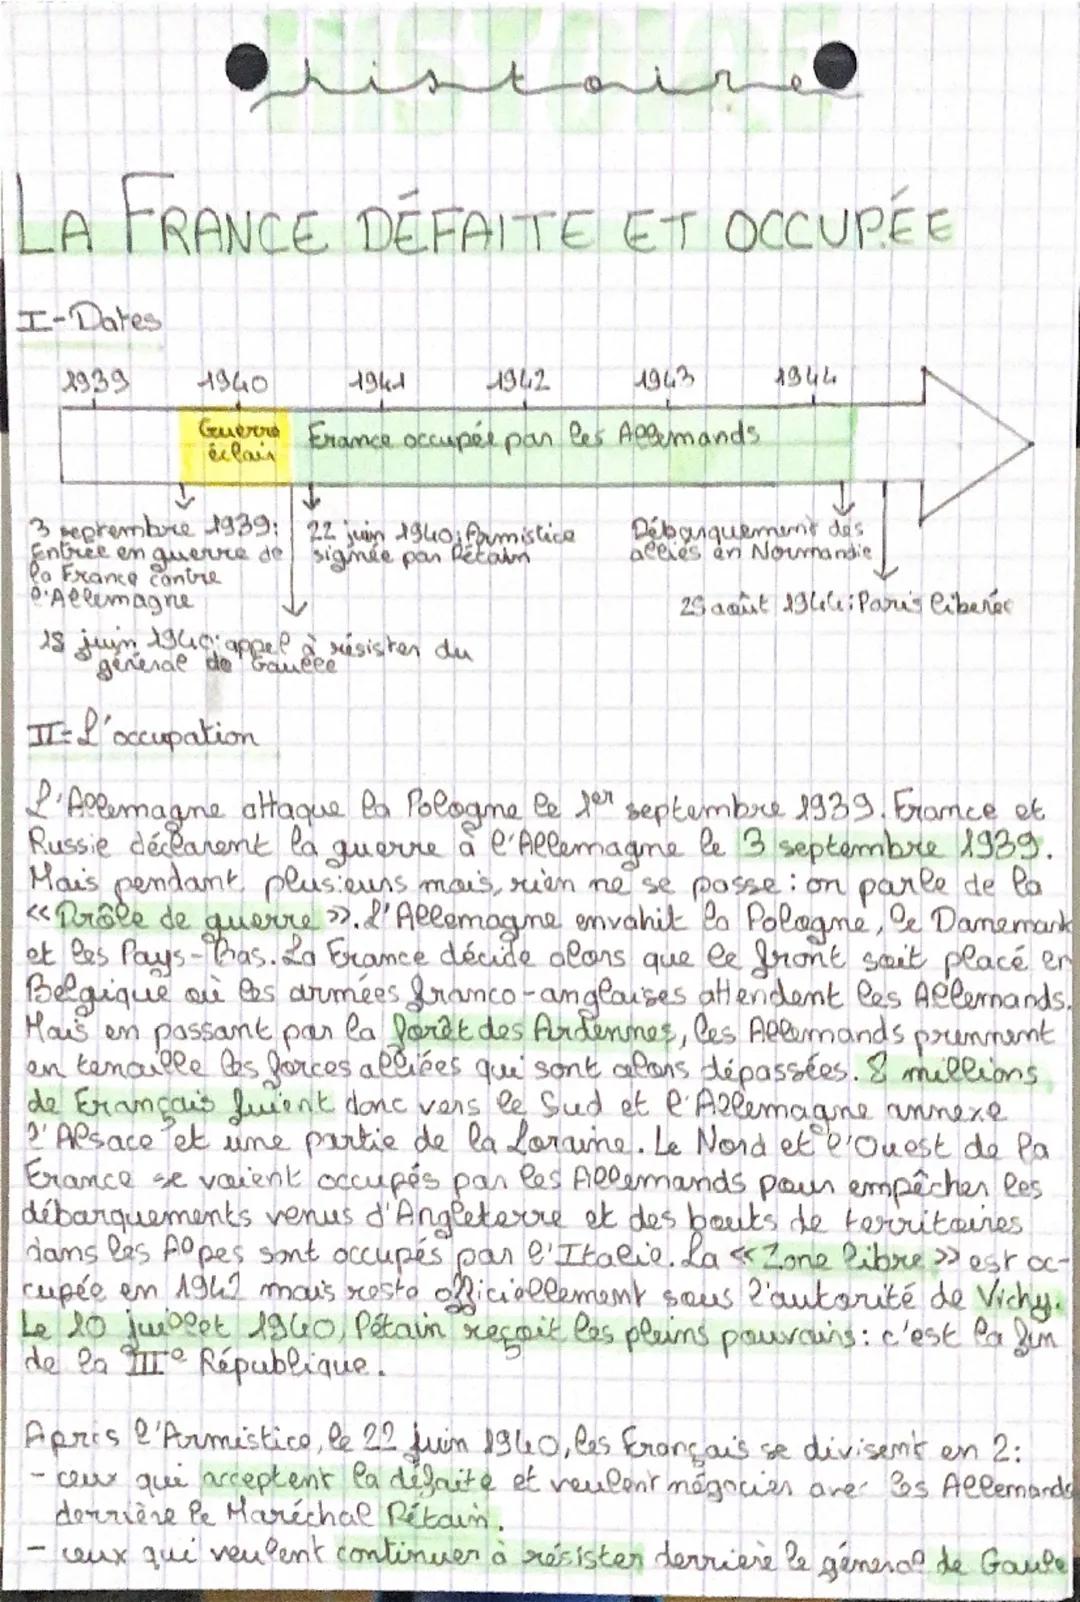 HISTOIRE
histoire
LA FRANCE DÉFAITE ET OCCUPÉE
I-Dates
1939 1940 1941 1942 1943 1944
Guerre éclair
France occupée par les Allemands
3 septembre 1939:
Entrée en guerre de
la France contre
l'Allemagne
22 juin 1940: Armistice
signée par Pétain
Débarquement des
alliés en Normandie
25 août 1944: Paris libérée
18 juin 1940: appel à résister du
général de Gaulle
II-L'occupation
L'Allemagne attaque la Pologne le 1er septembre 1939. France et
Russie déclarent la guerre à l'Allemagne le 3 septembre 1939.
Mais pendant plusieurs mois, rien ne se passe: on parle de la
«Drôle de guerre». L'Allemagne envahit la Pologne, le Danemark
et les Pays-Bas. La France décide alors que le front soit placé en
Belgique où les armées franco-anglaises attendent les Allemands.
Mais en passant par la forêt des Ardennes, les Allemands prennent
en tenaille les forces alliées qui sont alors dépassées. 8 millions
de Français fuient donc vers le Sud et l'Allemagne annexe
l'Alsace et une partie de la Loraine. Le Nord et l'Ouest de la
France se voient occupés par les Allemands pour empêcher les
débarquements venus d'Angleterre et des bouts de territoires
dans les Alpes sont occupés par l'Italie. La «Zone libre» est oc-
cupée en 1942 mais reste officiellement sous l'autorité de Vichy.
Le 10 juillet 1940, Pétain reçoit les pleins pouvoirs: c'est la fin
de la IIIe République.
Après l'Armistice, le 22 juin 1940, les Français se divisent en 2:
- ceux qui acceptent la défaite et veulent négocier avec les Allemands
derrière le Maréchal Pétain.
- ceux qui veulent continuer à résister derrière le général de Gaulle